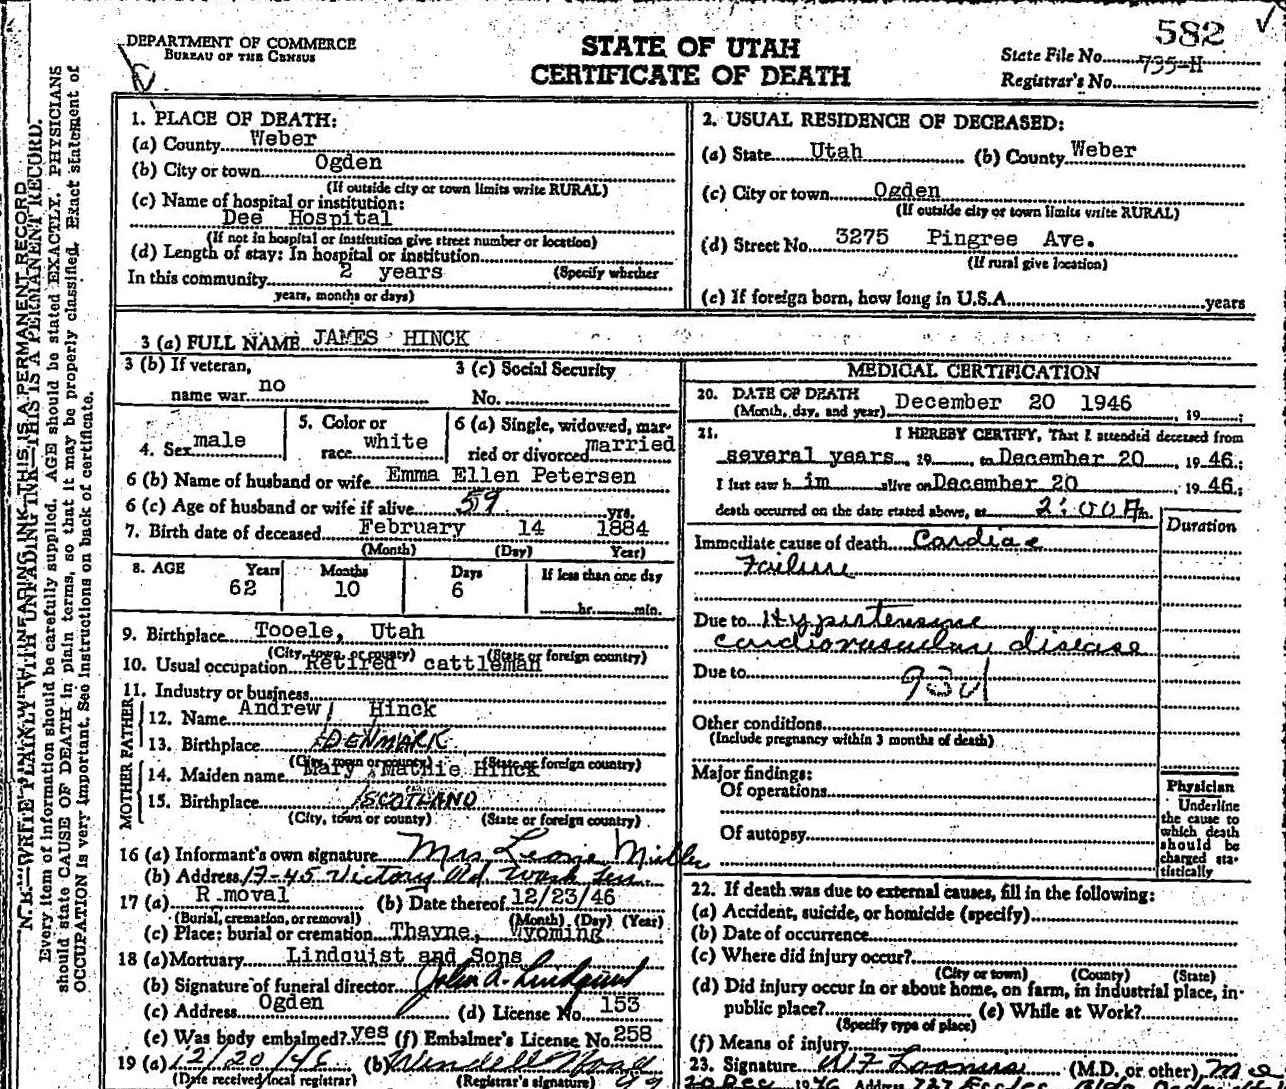 582
DEPARTMENT OF COMMERCE
BUREAU OF THE CENSUS
STATE OF UTAH
CERTIFICATE OF DEATH
State File No. 735-H
Registrar's No.
N. B.—WRITE PLAINLY WITH UNFADING INK—THIS IS A PERMANENT RECORD.
Every item of information should be carefully supplied. AGE should be stated EXACTLY. PHYSICIANS
should state CAUSE OF DEATH in plain terms, so that it may be properly classified. Exact statement of
OCCUPATION is very important. See instructions on back of certificate.
1. PLACE OF DEATH:
(a) County Weber
(b) City or town Ogden
(If outside city or town limits write RURAL)
(c) Name of hospital or institution:
Dee Hospital
(If not in hospital or institution give street number or location)
(d) Length of stay: In hospital or institution
In this community 2 years (Specify whether
years, months or days)
2. USUAL RESIDENCE OF DECEASED:
(a) State Utah (b) County Weber
(c) City or town Ogden
(If outside city or town limits write RURAL)
(d) Street No. 3275 Pingree Ave.
(If rural give location)
(e) If foreign born, how long in U.S.A. years
3 (a) FULL NAME JAMES HINCK
3 (b) If veteran,
name war no
3 (c) Social Security
No.
4. Sex male
5. Color or
race white
6 (a) Single, widowed, mar-
ried or divorced married
6 (b) Name of husband or wife Emma Ellen Petersen
6 (c) Age of husband or wife if alive 59 yrs.
7. Birth date of deceased February 14 1884
(Month) (Day) Year)
8. AGE Years Months Days If less than one day
62 10 6 hr. min.
9. Birthplace Tooele, Utah
(City, town, or county) (State or foreign country)
10. Usual occupation Retired cattleman
11. Industry or business
FATHER
12. Name Andrew Hinck
13. Birthplace DENMARK
(City, town or county) (State or foreign country)
MOTHER
14. Maiden name Mary Mathie Hinck
15. Birthplace SCOTLAND
(City, town or county) (State or foreign country)
16 (a) Informant's own signature Mrs Leone Miller
(b) Address 17-45 Victory Rd.
17 (a) R moval (b) Date thereof 12/23/46
(Burial, cremation, or removal) (Month) (Day) (Year)
(c) Place: burial or cremation Thayne, Wyoming
18 (a) Mortuary Lindquist and Sons
(b) Signature of funeral director John A. Lindquist
(c) Address Ogden (d) License No. 153
(e) Was body embalmed? yes (f) Embalmer's License No. 258
19 (a) 12/20/46 (b) Wendell
(Date received local registrar) (Registrar's signature)
MEDICAL CERTIFICATION
20. DATE OF DEATH
(Month, day, and year) December 20 1946, 19 ;
21. I HEREBY CERTIFY, That I attended deceased from
several years, 19 , to December 20, 19 46;
I last saw h im alive on December 20, 19 46;
death occurred on the date stated above, at 2:00 A m.
Duration
Immediate cause of death Cardiac
Failure
Due to Hypertensive
cardiovascular disease
Due to
93d
Other conditions
(Include pregnancy within 3 months of death)
Major findings:
Of operations
Of autopsy
Physician
Underline
the cause to
which death
should be
charged sta-
tistically
22. If death was due to external causes, fill in the following:
(a) Accident, suicide, or homicide (specify)
(b) Date of occurrence
(c) Where did injury occur?
(City or town) (County) (State)
(d) Did injury occur in or about home, on farm, in industrial place, in
public place? (e) While at Work?
(Specify type of place)
(f) Means of injury
23. Signature (M.D. or other) M D
20 Dec 1946 Address 727 Eccles Bldg